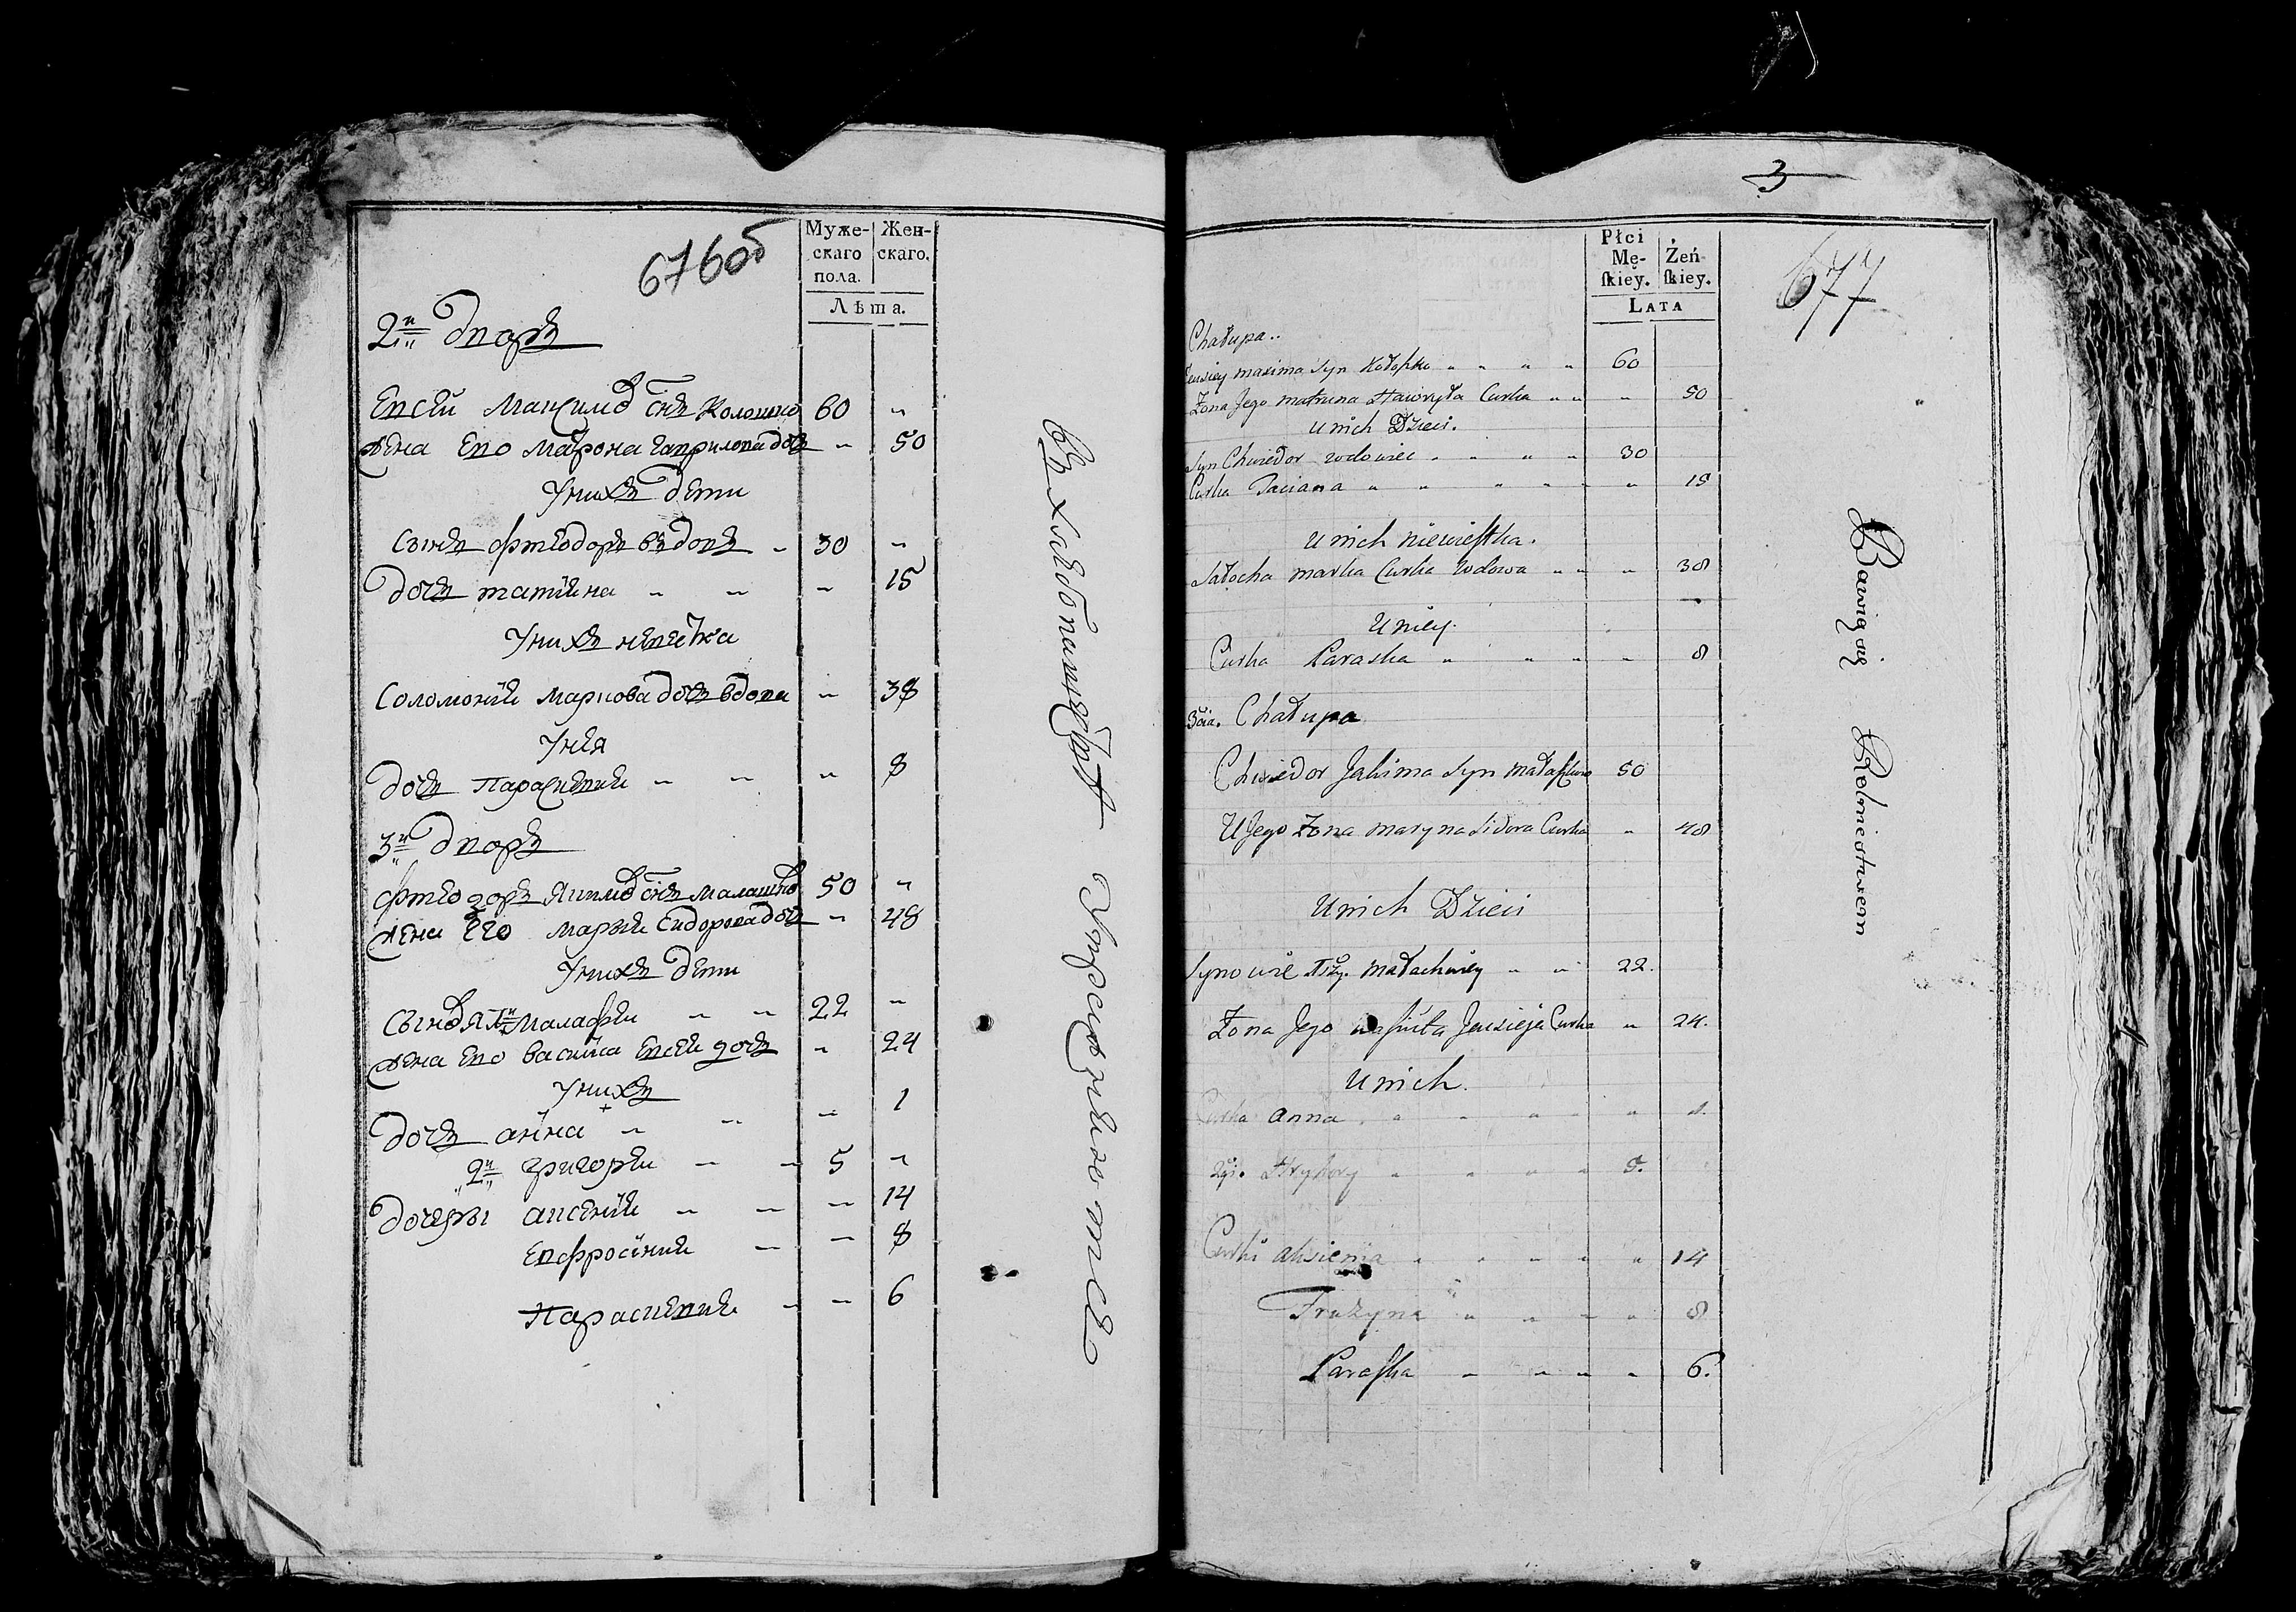 676 об
Муже-
скаго
пола.
Жен-
скаго.
Лѣта.
2й Дворъ
Евсей Максимов снъ Колошко 60 „
Жена Ево Матрона Гаврилова дочь „ 50
У них дети
Сынъ Фтеодоръ вдовъ „ 30 „
Дочь татияна „ „ „ 15
У нихъ невестка
Соломония Маркова дочь вдова „ 38
У нея
Дочь Парасковия „ „ „ 8
3й Дворъ
Фтеодоръ Якимов снъ Малашко 50 „
Жена Его Мария Сидорова дочь „ 48
У нихъ дети
Сынов 1й Малафей „ „ 22 „
Жена Ево Василиса Евсей дочь „ 24
У нихъ
Дочь анна „ „ „ 1
2й григорей „ „ 5 „
Дочеры аксения „ „ „ 14
Евфросиния „ „ 8
Парасковия „ „ 6
3
677
Płci
Mę-
skiey.
Żeń
skiey.
LATA
Chałupa..
Jeusiey maxima Syn 60
Żona Jego matruna Hawryła Curka „ „ „ 50
U nich Dzieci.
Syn Chwiedor wdowiec „ „ „ „ 30
Curka Taciana „ „ „ „ „ „ 15
U nich niewiestka.
Sałocha marka Curka wdowa „ „ „ 38
U niey.
Curka Paraska „ „ „ „ 8
3cia. Chałupa
Chwiedor Jakima Syn małaszko 50
U Jego Żona maryna Sidora Curka „ 48
U nich Dzieci
Synowie 1szy. małachwiey „ „ 22.
Żona Jego wasiuta Jeusieja Curka „ 24.
U nich.
Curka anna „ „ „ „ „ 1.
2gi. Hryhory „ „ „ „ 5.
Curki aksienia „ „ „ „ „ 14
Fruzyna „ „ „ „ 8
Paraska „ „ „ „ 6.
Bawią się Rolnictwem